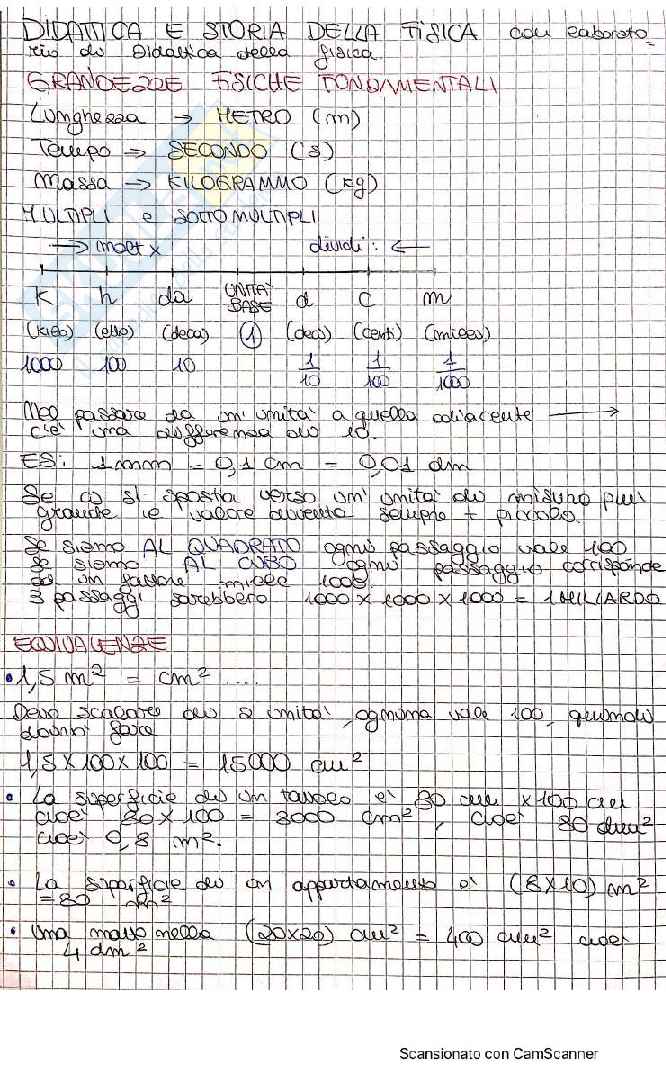 DIDATTICA E STORIA DELLA FISICA con laborato_
rio di Didattica della fisica.
GRANDEZZE FISICHE FONDAMENTALI
Lunghezza → METRO (m)
Tempo → SECONDO (s)
Massa → KILOGRAMMO (kg)
MULTIPLI e SOTTOMULTIPLI
→ molt x dividi : ←
K h da UNITA' BASE d c m
(kilo) (etto) (deca) (1) (deci) (centi) (milli)
1000 100 10 1/10 1/100 1/1000
Nel passare da un' unità a quella adiacente →
c'è una differenza di 10.
ES: 1mm = 0,1 cm = 0,01 dm
Se ci si sposta verso un' unità di misura più
grande il valore diventa sempre + piccolo.
Se siamo AL QUADRATO ogni passaggio vale 100
Se siamo AL CUBO ogni passaggio corrisponde
ad un fattore mille 1000
3 passaggi sarebbero 1000 x 1000 x 1000 = 1 MILIARDO
EQUIVALENZE
• 1,5 m² = cm² ....
Devo scalare di 2 unità, ognuna vale 100, quindi
dovrò fare
1,5 x 100 x 100 = 15000 cm²
• La superficie di un tavolo è 80 cm x 100 cm
cioè 80 x 100 = 8000 cm², cioè 80 dm²
cioè 0,8 m².
• La superficie di un appartamento è (8x10) m²
= 80 m²
• Una mattonella (20x20) cm² = 400 cm² cioè
4 dm²
Scansionato con CamScanner